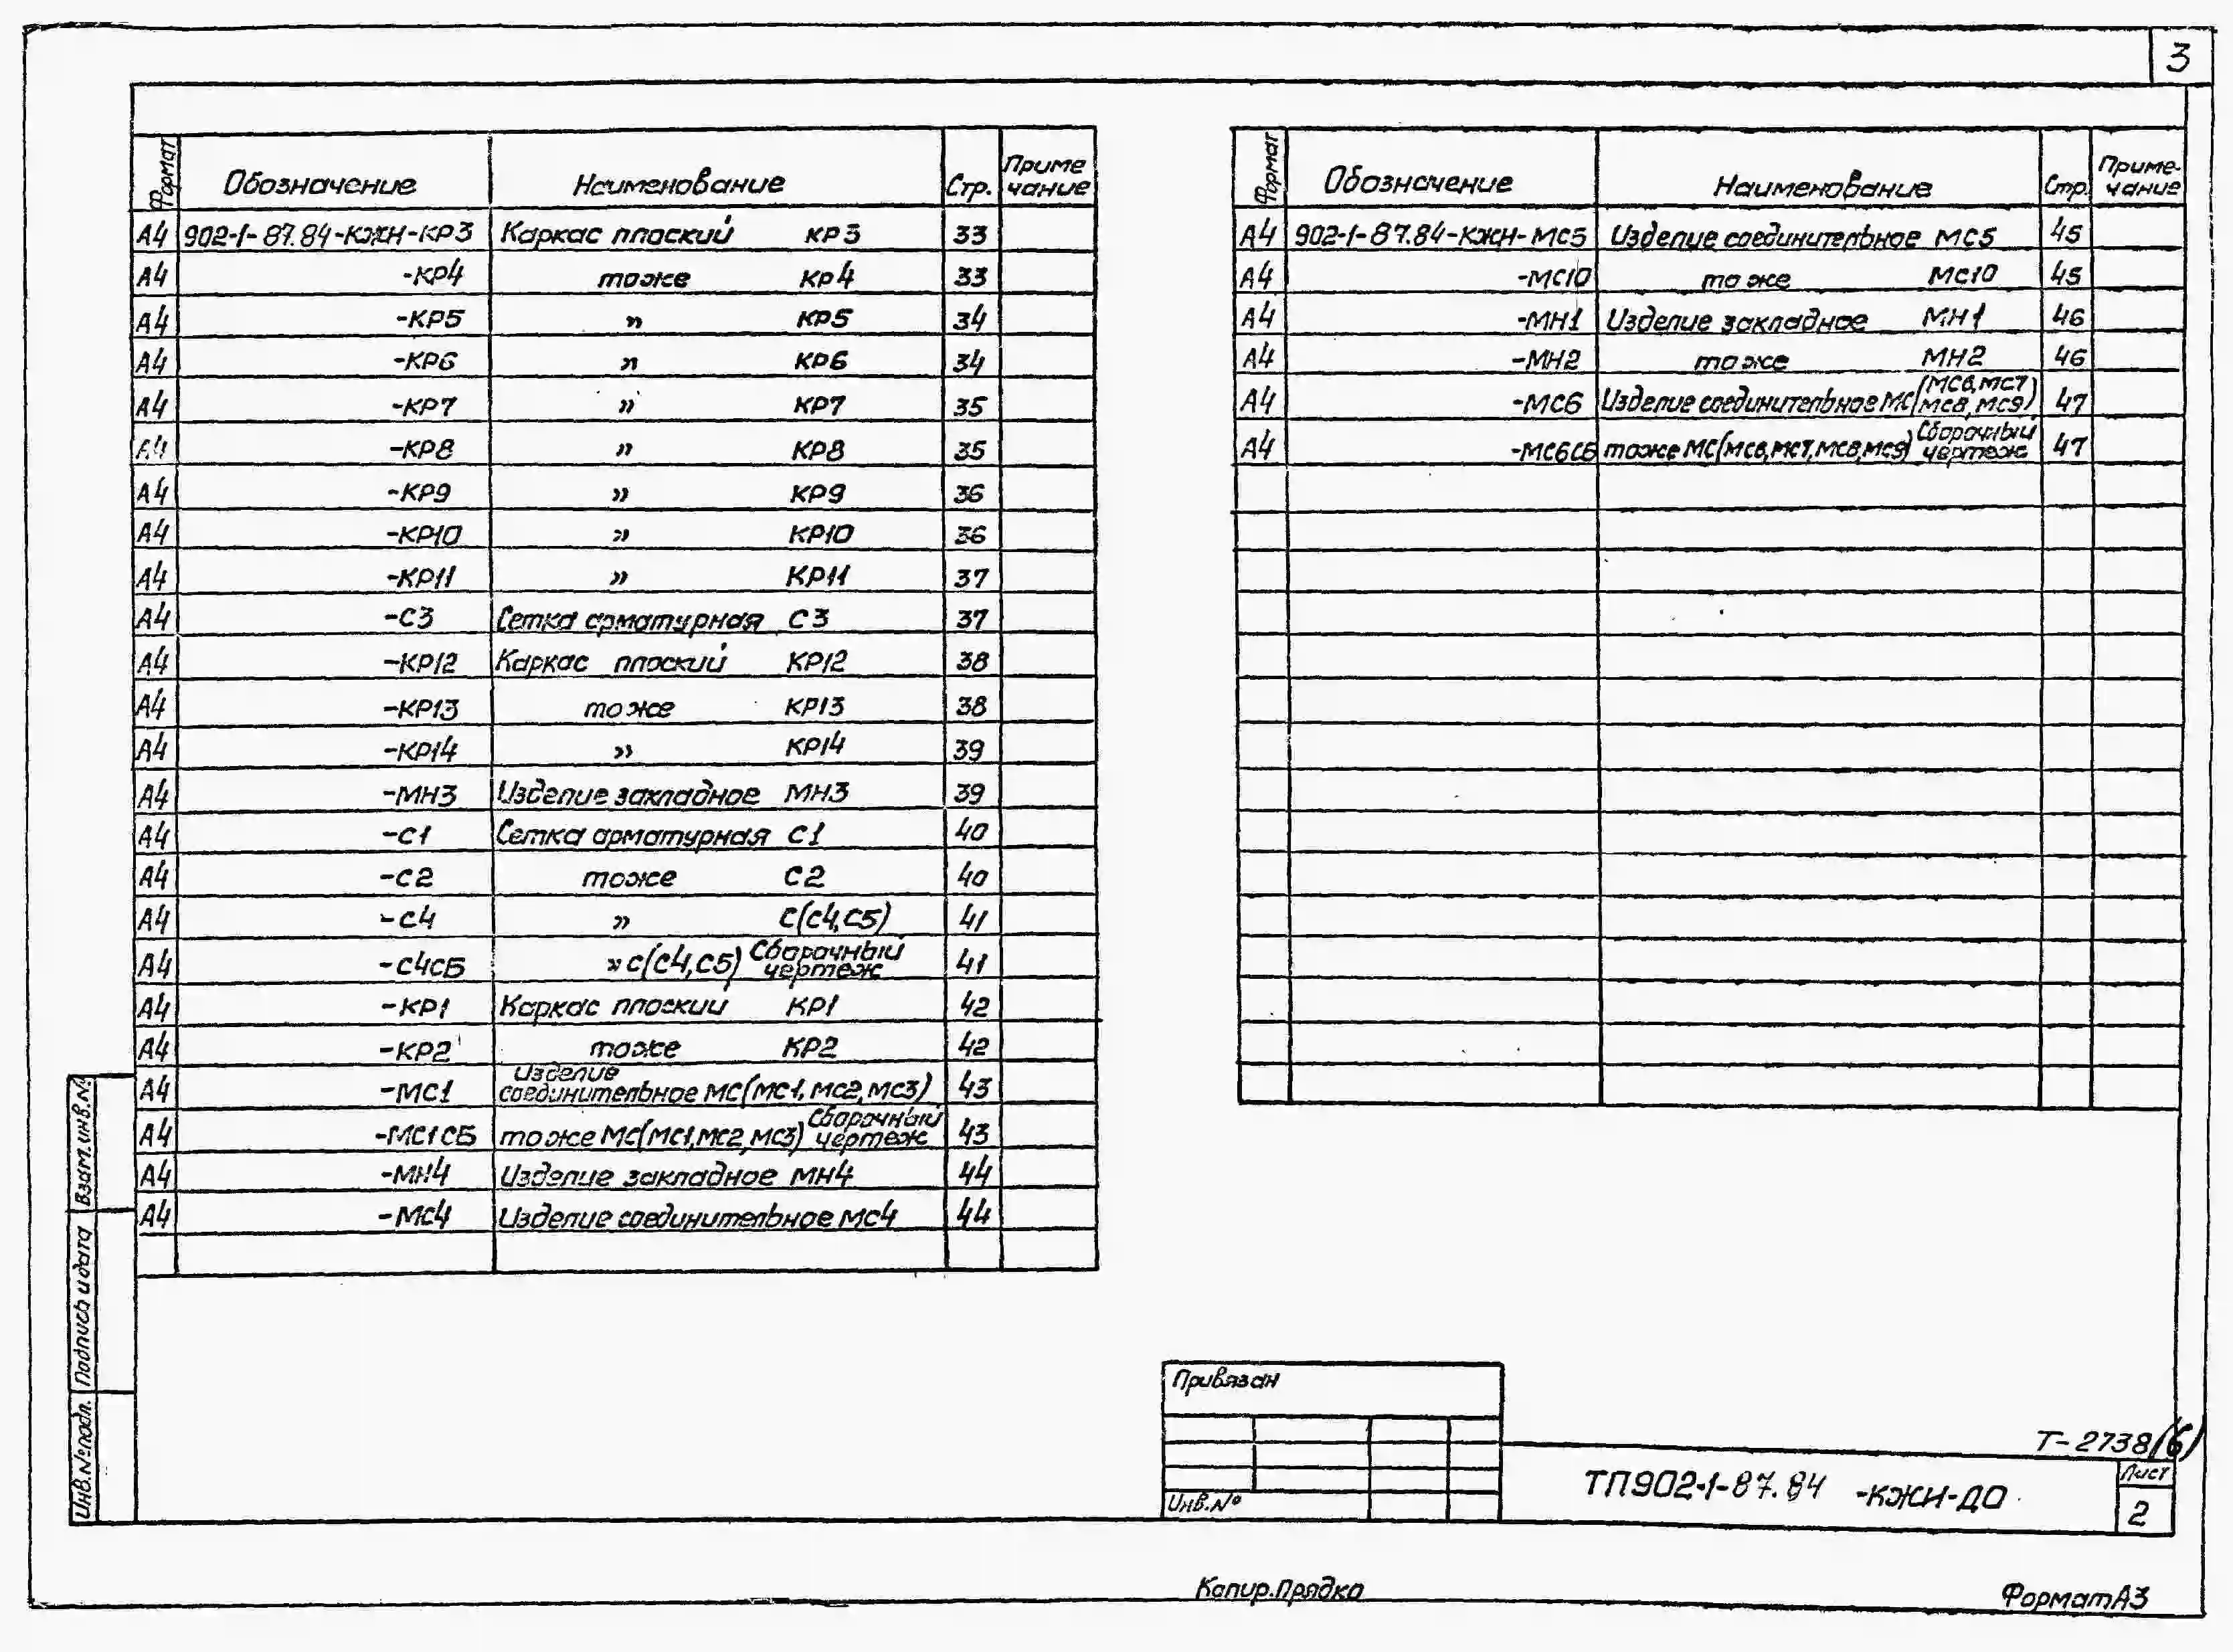 3
Формат Обозначение Наименование Стр. Приме чание
А4 902-1-87.84-КЖИ-КР3 Каркас плоский КР3 33
А4 -КР4 то же КР4 33
А4 -КР5 " КР5 34
А4 -КР6 " КР6 34
А4 -КР7 " КР7 35
А4 -КР8 " КР8 35
А4 -КР9 " КР9 36
А4 -КР10 " КР10 36
А4 -КР11 " КР11 37
А4 -С3 Сетка арматурная С3 37
А4 -КР12 Каркас плоский КР12 38
А4 -КР13 то же КР13 38
А4 -КР14 " КР14 39
А4 -МН3 Изделие закладное МН3 39
А4 -С1 Сетка арматурная С1 40
А4 -С2 то же С2 40
А4 -С4 " С(С4,С5) 41
А4 -С4СБ " С(С4,С5) Сборочный чертеж 41
А4 -КР1 Каркас плоский КР1 42
А4 -КР2 то же КР2 42
А4 -МС1 Изделие соединительное МС(МС1, МС2, МС3) 43
А4 -МС1СБ то же МС(МС1,МС2,МС3) Сборочный чертеж 43
А4 -МН4 Изделие закладное МН4 44
А4 -МС4 Изделие соединительное МС4 44
Формат Обозначение Наименование Стр. Приме- чание
А4 902-1-87.84-КЖИ-МС5 Изделие соединительное МС5 45
А4 -МС10 то же МС10 45
А4 -МН1 Изделие закладное МН1 46
А4 -МН2 то же МН2 46
А4 -МС6 Изделие соединительное МС(МС6,МС7, МС8,МС9) 47
А4 -МС6СБ то же МС(МС6,МС7,МС8,МС9) Сборочный чертеж 47
Взам.инв.№
Подпись и дата
Инв.№подл.
Привязан
Инв.№
Т-2738(6)
ТП902-1-87.84 -КЖИ-ДО
Лист
2
Копир.Прядко
Формат А3